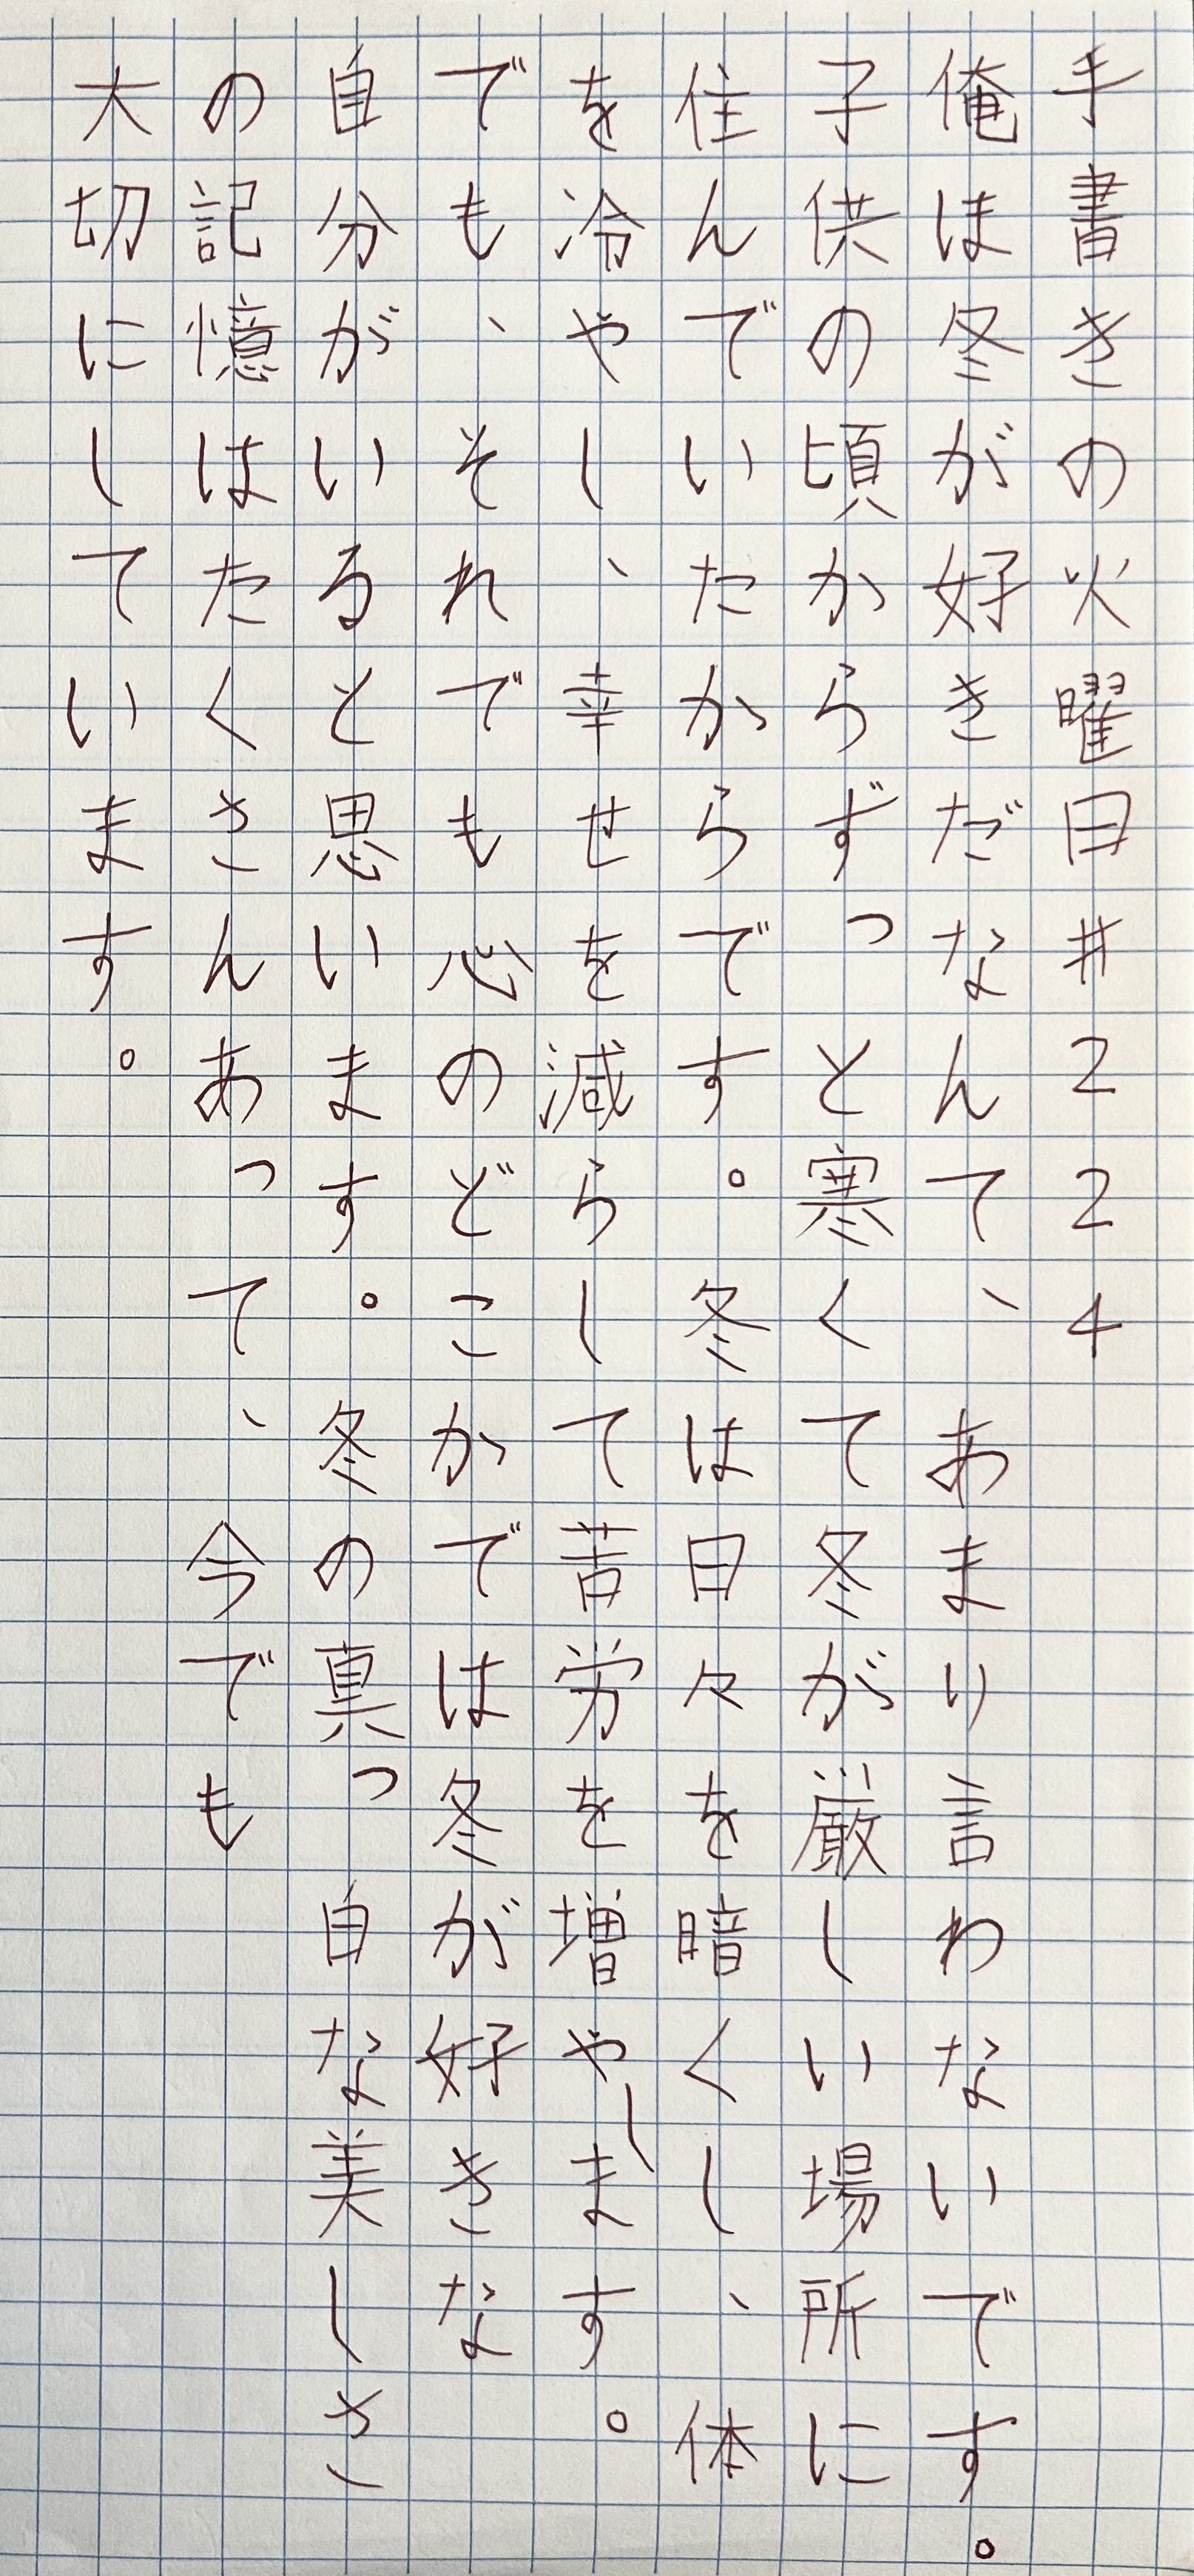 手書きの火曜日#224
俺は冬が好きだなんて、あまり言わないです。
子供の頃からずっと寒くて冬が厳しい場所に
住んでいたからです。冬は日々を暗くし、体
を冷やし、幸せを減らして苦労を増やします。
でも、それでも心のどこかでは冬が好きな
自分がいると思います。冬の真っ白な美しさ
の記憶はたくさんあって、今でも
大切にしています。